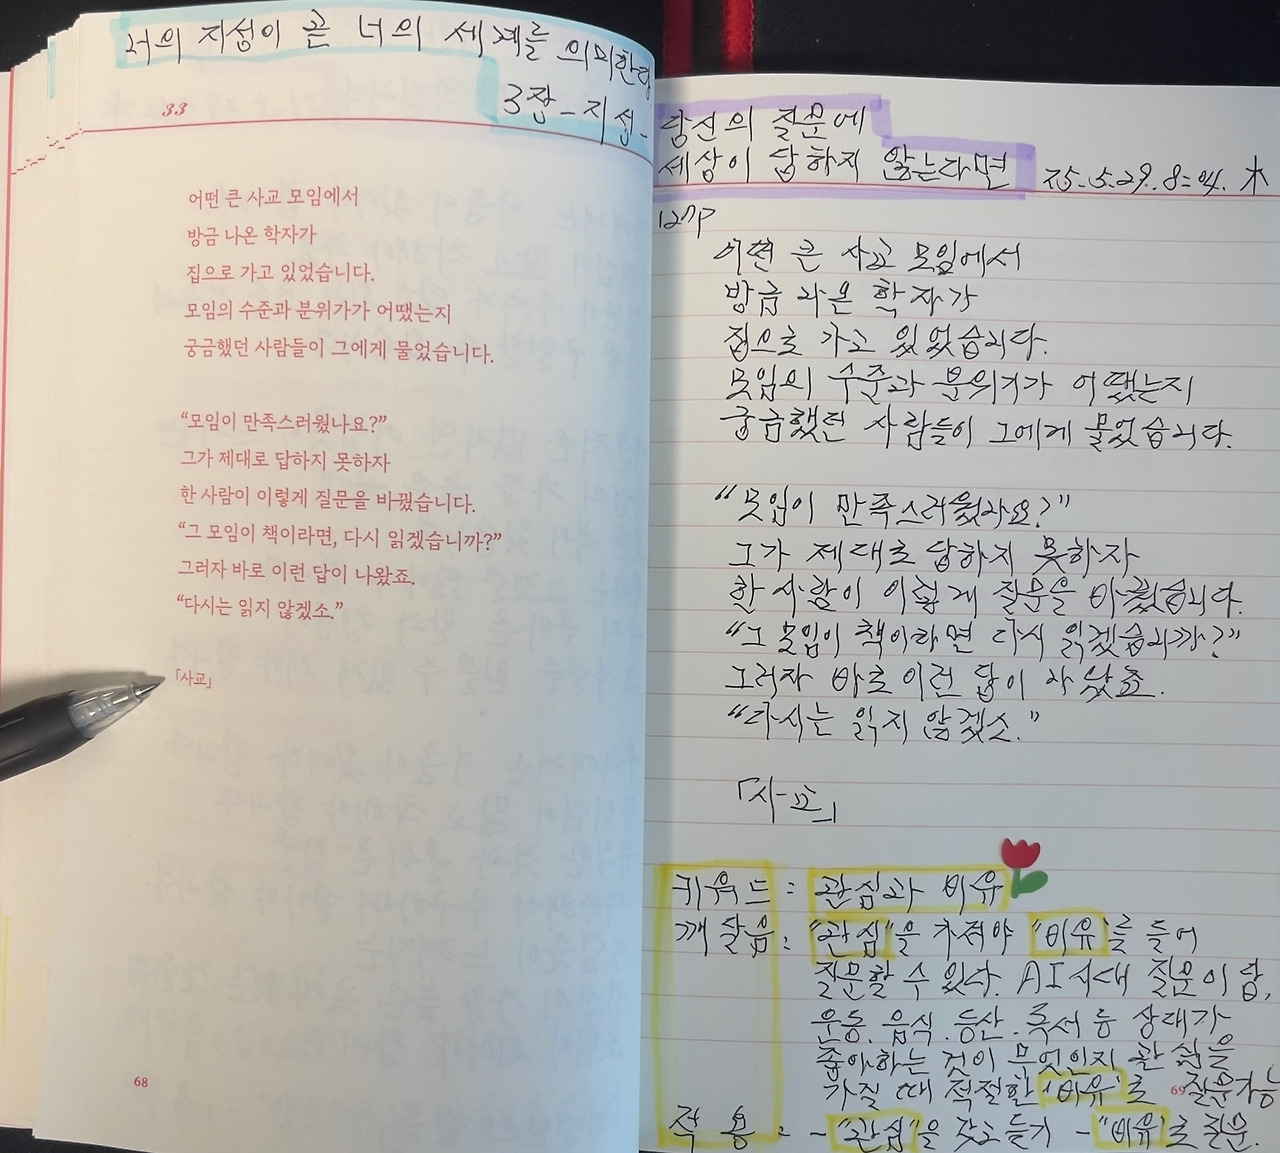 너의 지성이 곧 너의 세계를 의미한다
3장 - 지성 -
33
어떤 큰 사교 모임에서
방금 나온 학자가
집으로 가고 있었습니다.
모임의 수준과 분위가가 어땠는지
궁금했던 사람들이 그에게 물었습니다.
“모임이 만족스러웠나요?”
그가 제대로 답하지 못하자
한 사람이 이렇게 질문을 바꿨습니다.
“그 모임이 책이라면, 다시 읽겠습니까?”
그러자 바로 이런 답이 나왔죠.
“다시는 읽지 않겠소.”
「사교」
68
당신의 질문에
세상이 답하지 않는다면
25. 5. 29. 8:04. 木
127P
어떤 큰 사교 모임에서
방금 나온 학자가
집으로 가고 있었습니다.
모임의 수준과 분위기가 어땠는지
궁금했던 사람들이 그에게 물었습니다.
“모임이 만족스러웠나요?”
그가 제대로 답하지 못하자
한 사람이 이렇게 질문을 바꿨습니다.
“그 모임이 책이라면 다시 읽겠습니까?”
그러자 바로 이런 답이 나왔죠.
“다시는 읽지 않겠소.”
「사교」
키워드 : 관심과 비유
깨달음 : “관심”을 가져야 “비유”를 들어
질문할 수 있다. AI시대 질문이 답,
운동. 음식. 등산. 독서 등 상대가
좋아하는 것이 무엇인지 관심을
가질 때 적절한 “비유”로 질문가능
69
적용 : - “관심”을 갖고 듣기 - “비유”로 질문.